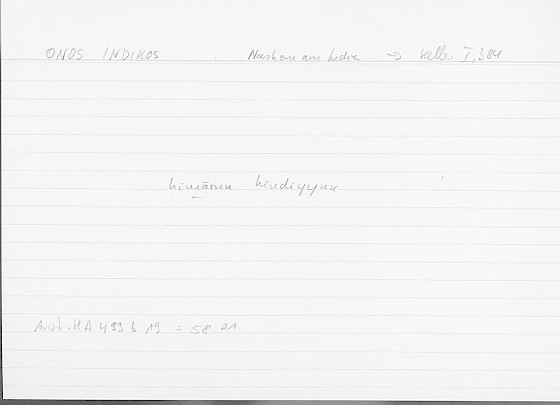 ONOS INDIKOS Nashorn aus Indien → Keller I, 384
ḥimārun hindiyyun
Arist. HA 499 b 19 = 58 21